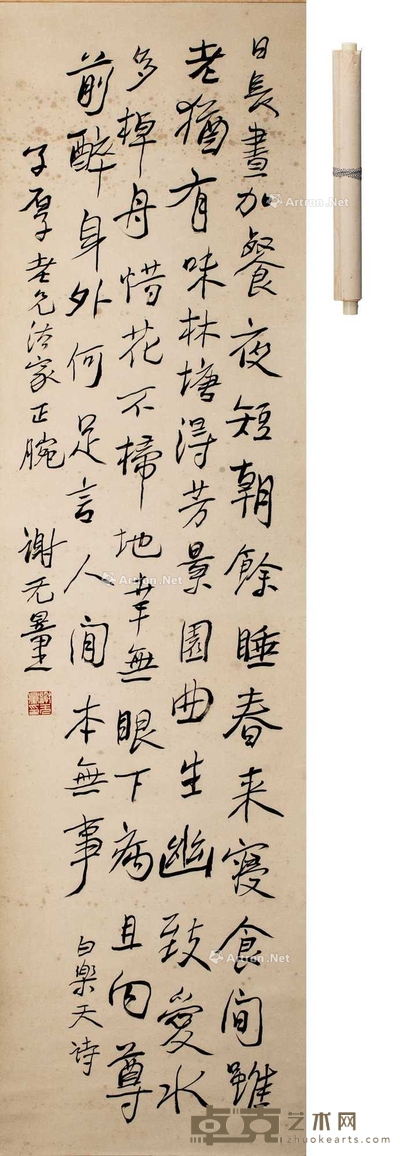 日長晝加餐夜短朝餘睡春来寝食间雖
老猶有味林塘得芳景園曲生幽致愛水
多棹舟惜花不掃地幸無眼下病且向尊
前醉身外何足言人间本無事
白樂天诗
子厚老兄法家正腕
谢无量
Artron.Net
Artron.Net
Artron.Net
Artron.Net
Artron.Net
卓克艺术网
zhuokearts.com